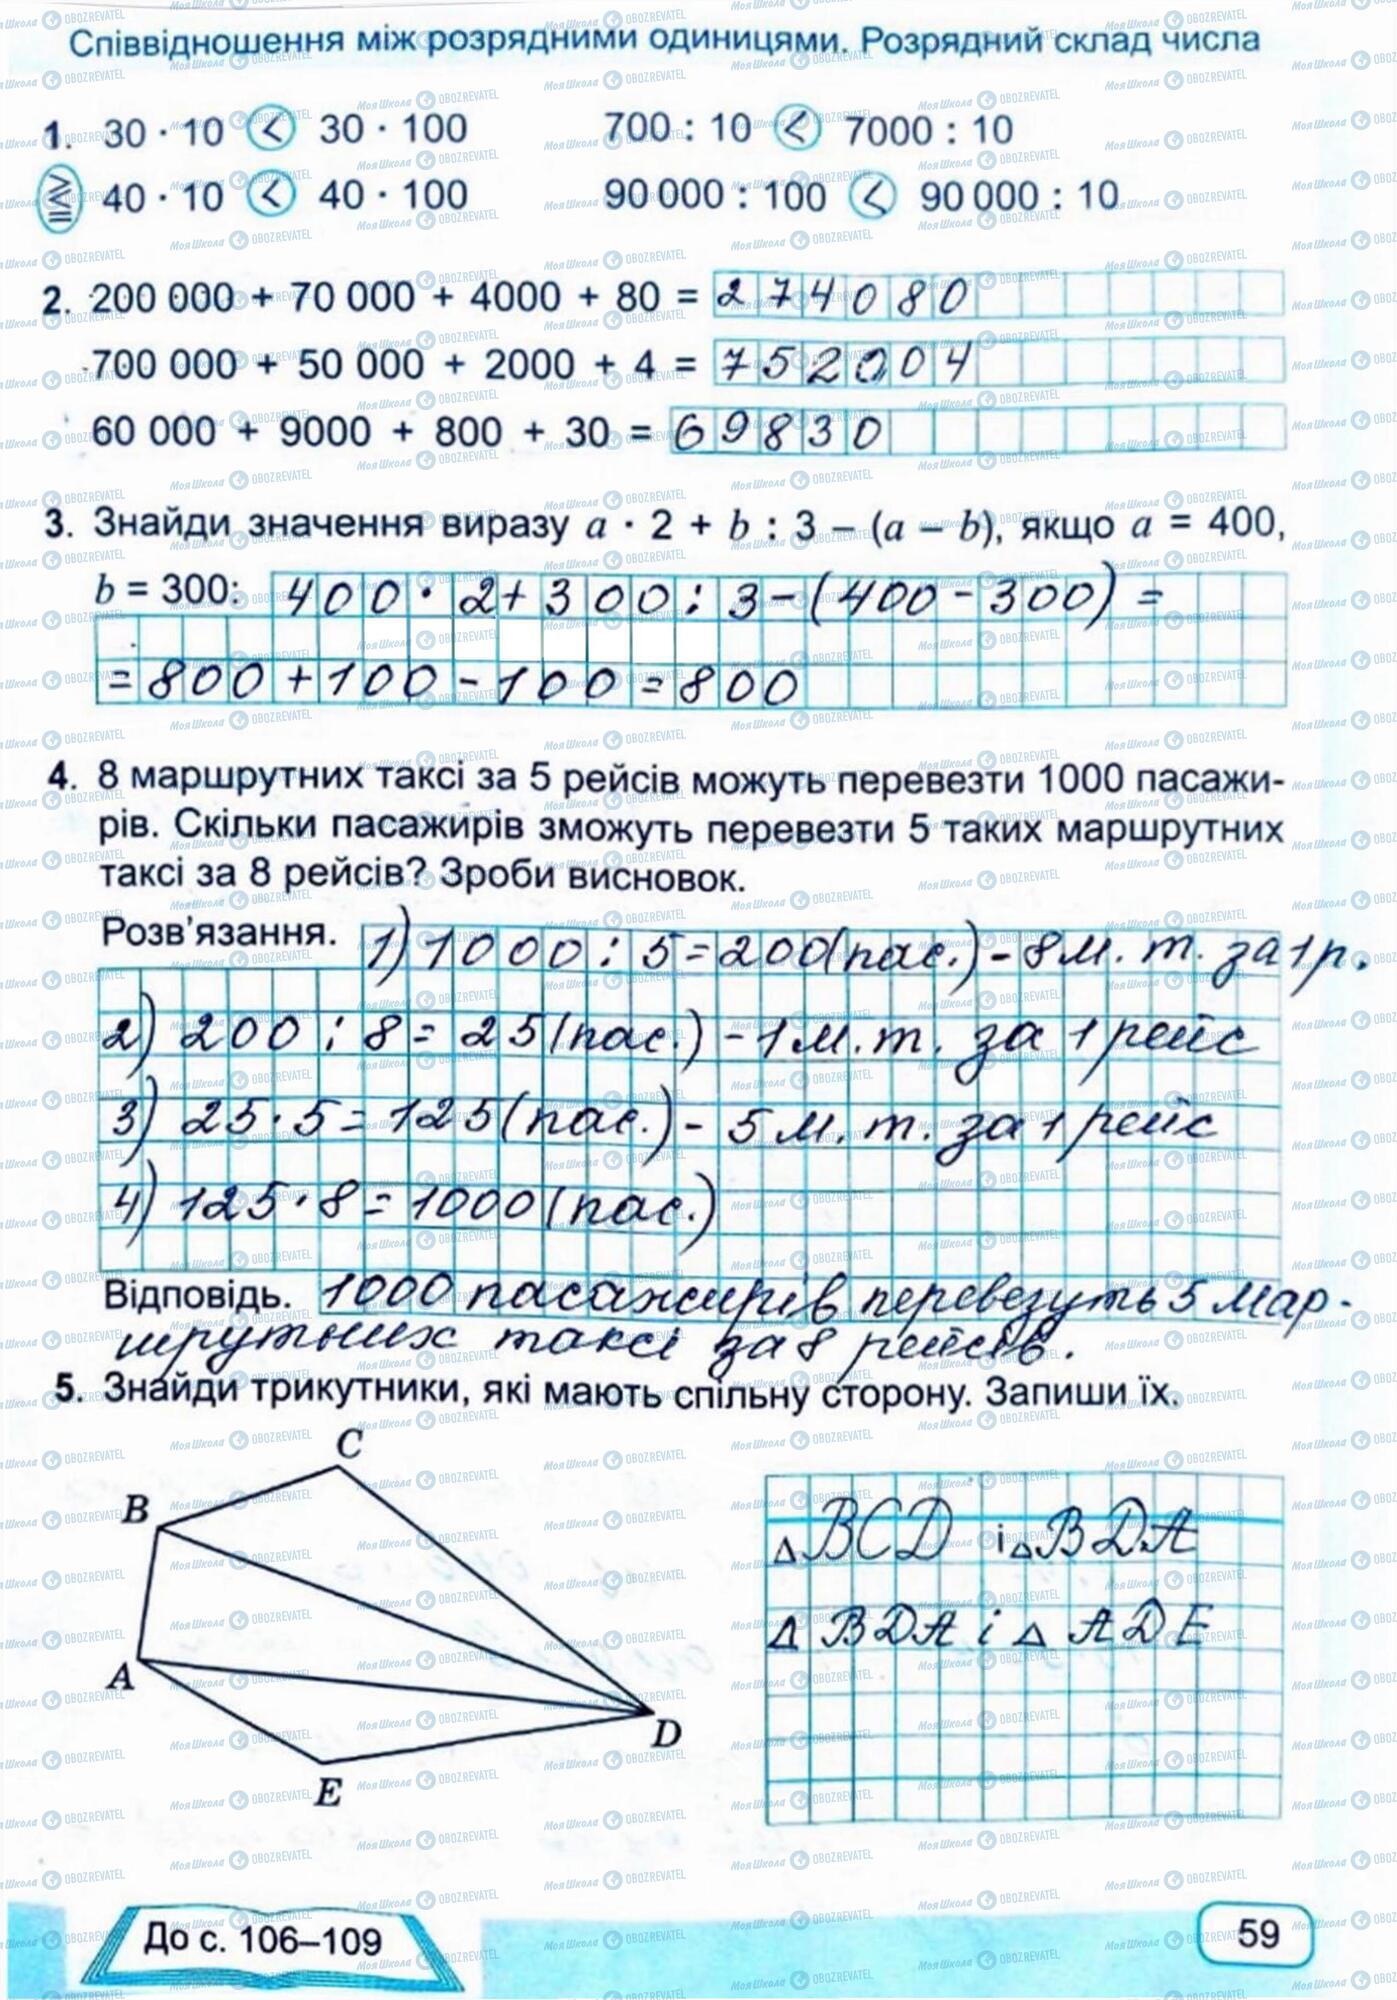 Співвідношення між розрядними одиницями. Розрядний склад числа
1. 30 · 10 < 30 · 100 700 : 10 < 7000 : 10
40 · 10 < 40 · 100 90 000 : 100 < 90 000 : 10
2. 200 000 + 70 000 + 4000 + 80 = 274080
700 000 + 50 000 + 2000 + 4 = 752004
60 000 + 9000 + 800 + 30 = 69830
3. Знайди значення виразу a · 2 + b : 3 – (a – b), якщо a = 400,
b = 300: 400 · 2 + 300 : 3 – (400 – 300) =
= 800 + 100 – 100 = 800
4. 8 маршрутних таксі за 5 рейсів можуть перевезти 1000 пасажи-
рів. Скільки пасажирів зможуть перевезти 5 таких маршрутних
таксі за 8 рейсів? Зроби висновок.
Розв'язання. 1) 1000 : 5 = 200 (пас.) – 8 м. т. за 1 р.
2) 200 : 8 = 25 (пас.) – 1 м. т. за 1 рейс
3) 25 · 5 = 125 (пас.) – 5 м. т. за 1 рейс
4) 125 · 8 = 1000 (пас.)
Відповідь. 1000 пасажирів перевезуть 5 мар-
шрутних таксі за 8 рейсів.
5. Знайди трикутники, які мають спільну сторону. Запиши їх.
C
B
A
D
E
△BCD і △BDA
△BDA і △ADE
До с. 106–109
59
Моя Школа OBOZREVATEL